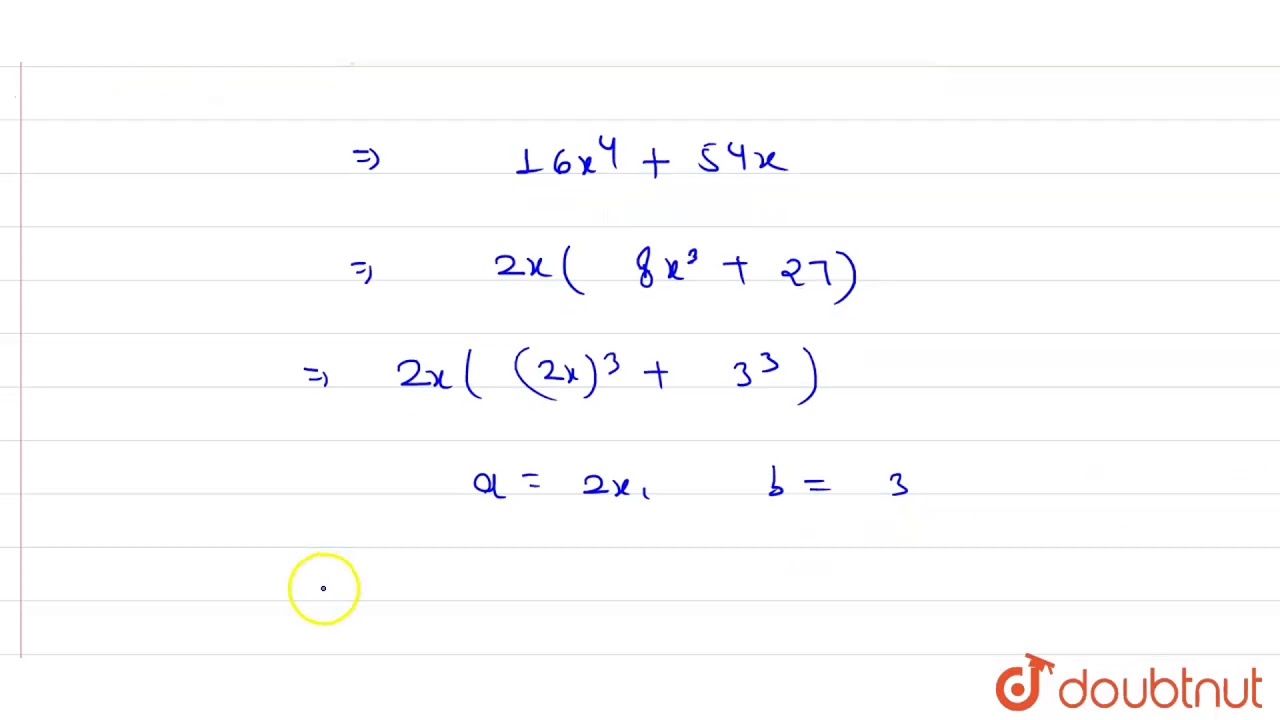 ⇒ 16x⁴ + 54x
⇒ 2x( 8x³ + 27)
⇒ 2x( (2x)³ + 3³ )
a = 2x, b = 3
doubtnut